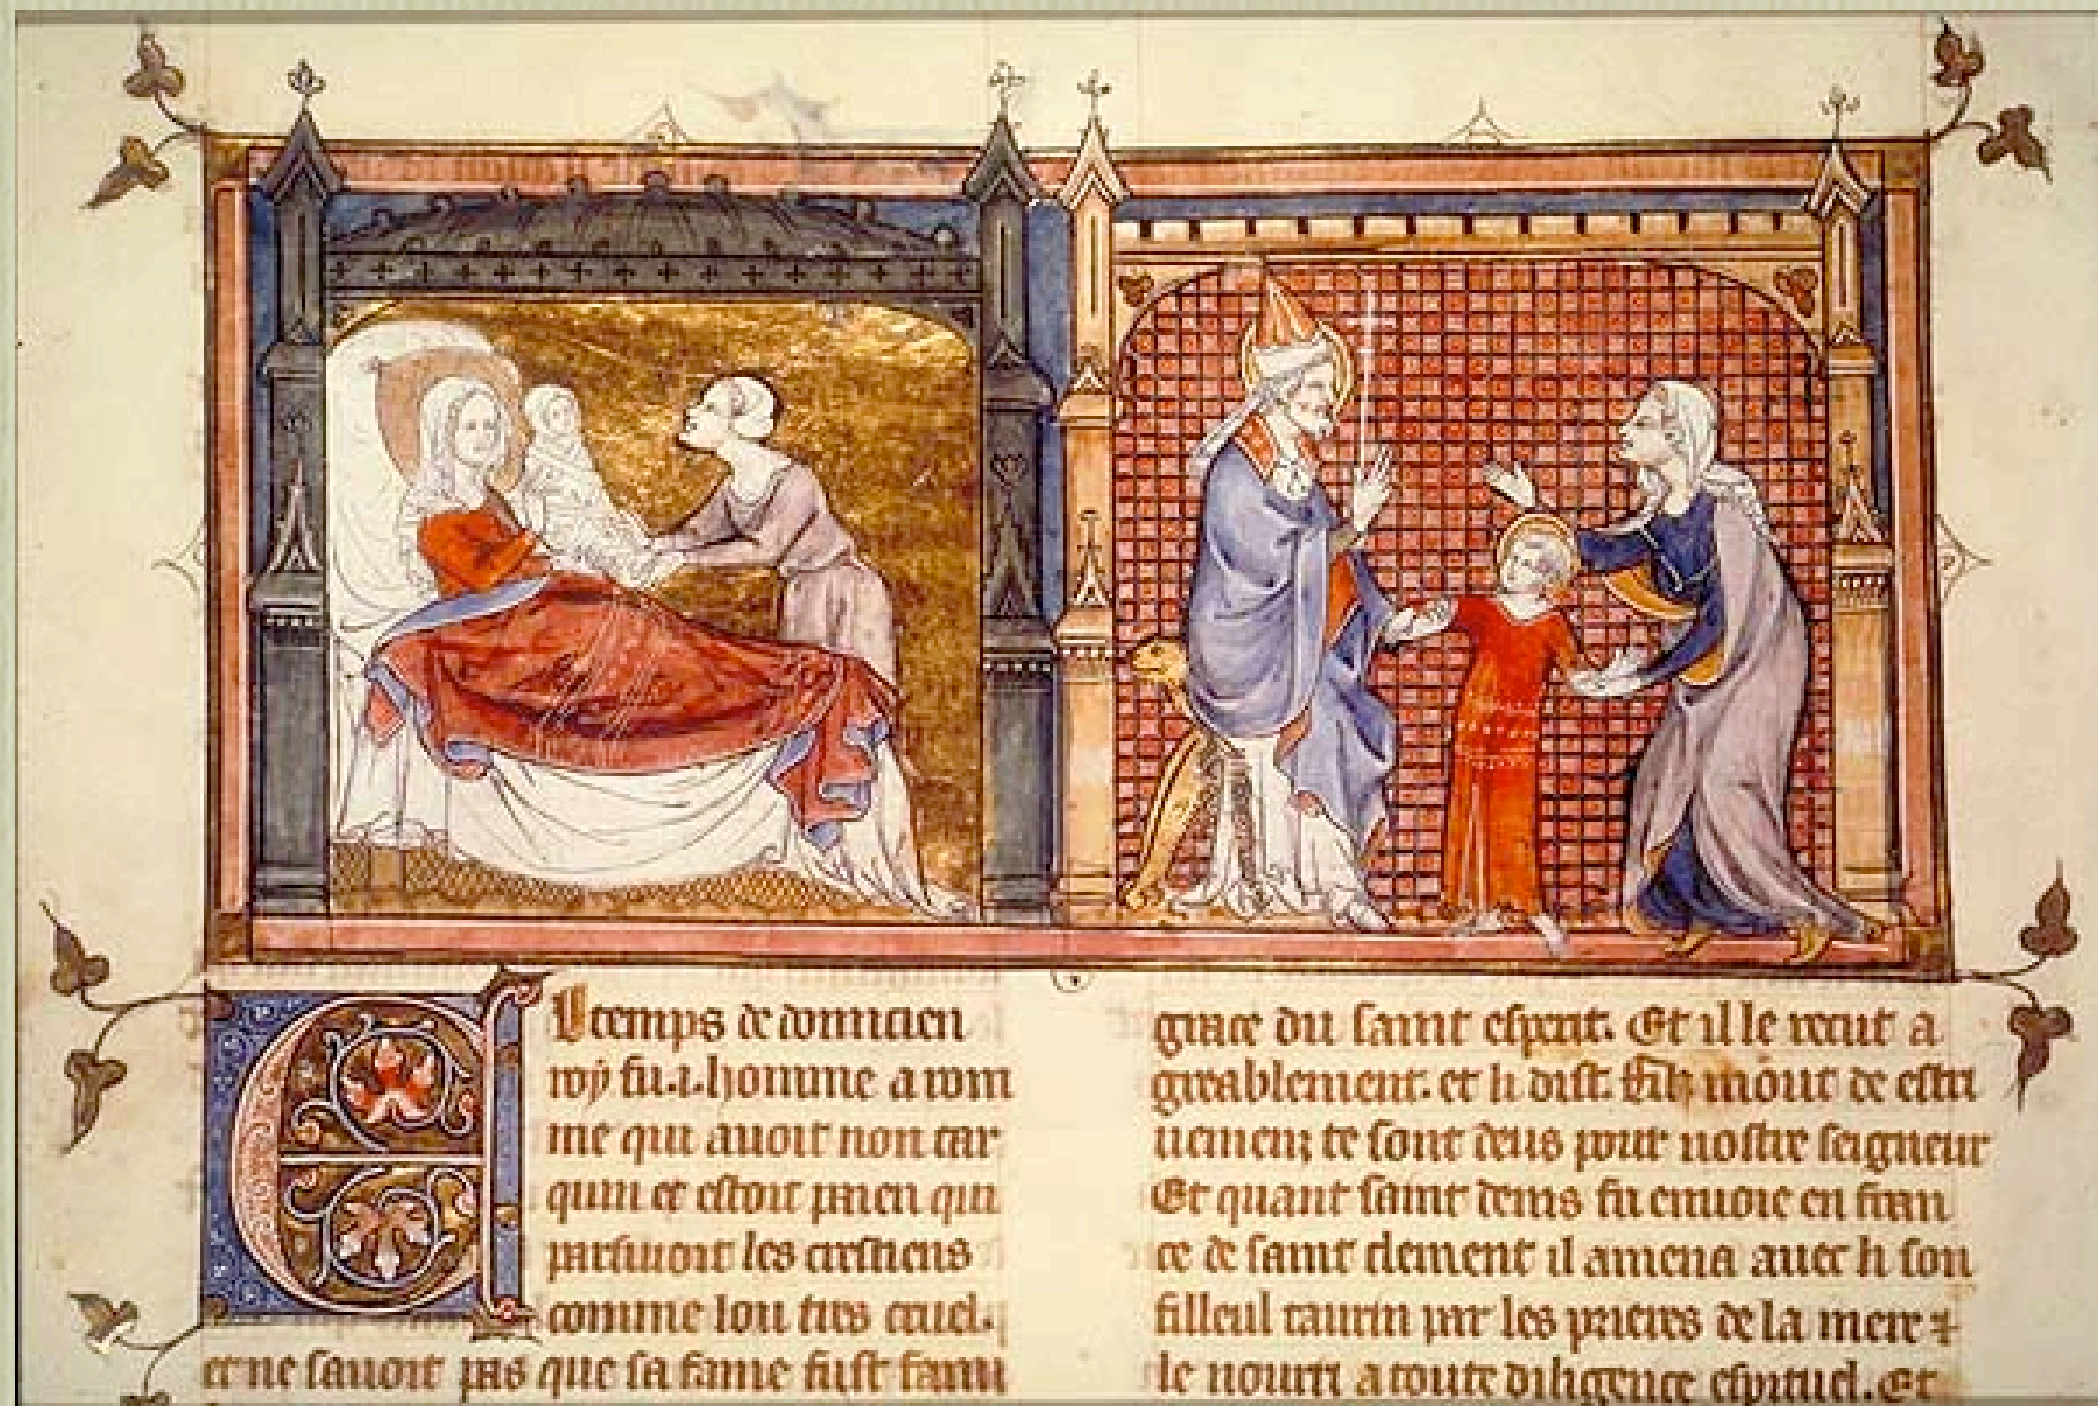 El temps de domicien
roy fu .i. homme a rom
me qui auoit non tar
quin et estoit paien qui
parsiuoit les crestiens
comme lou tres cruel.
et ne sauoit pas que sa fame fust
grace du saint esperit. Et il le recut a
greablement. et li dist. filz mout de estri
uemenz te sont deus pour nostre seigneur
Et quant saint denis fu enuoie en fran
ce de saint clement il amena auec li son
filleul taurin par les prieres de la mere ⁊
le nourri a toute diligence espirituel. Et